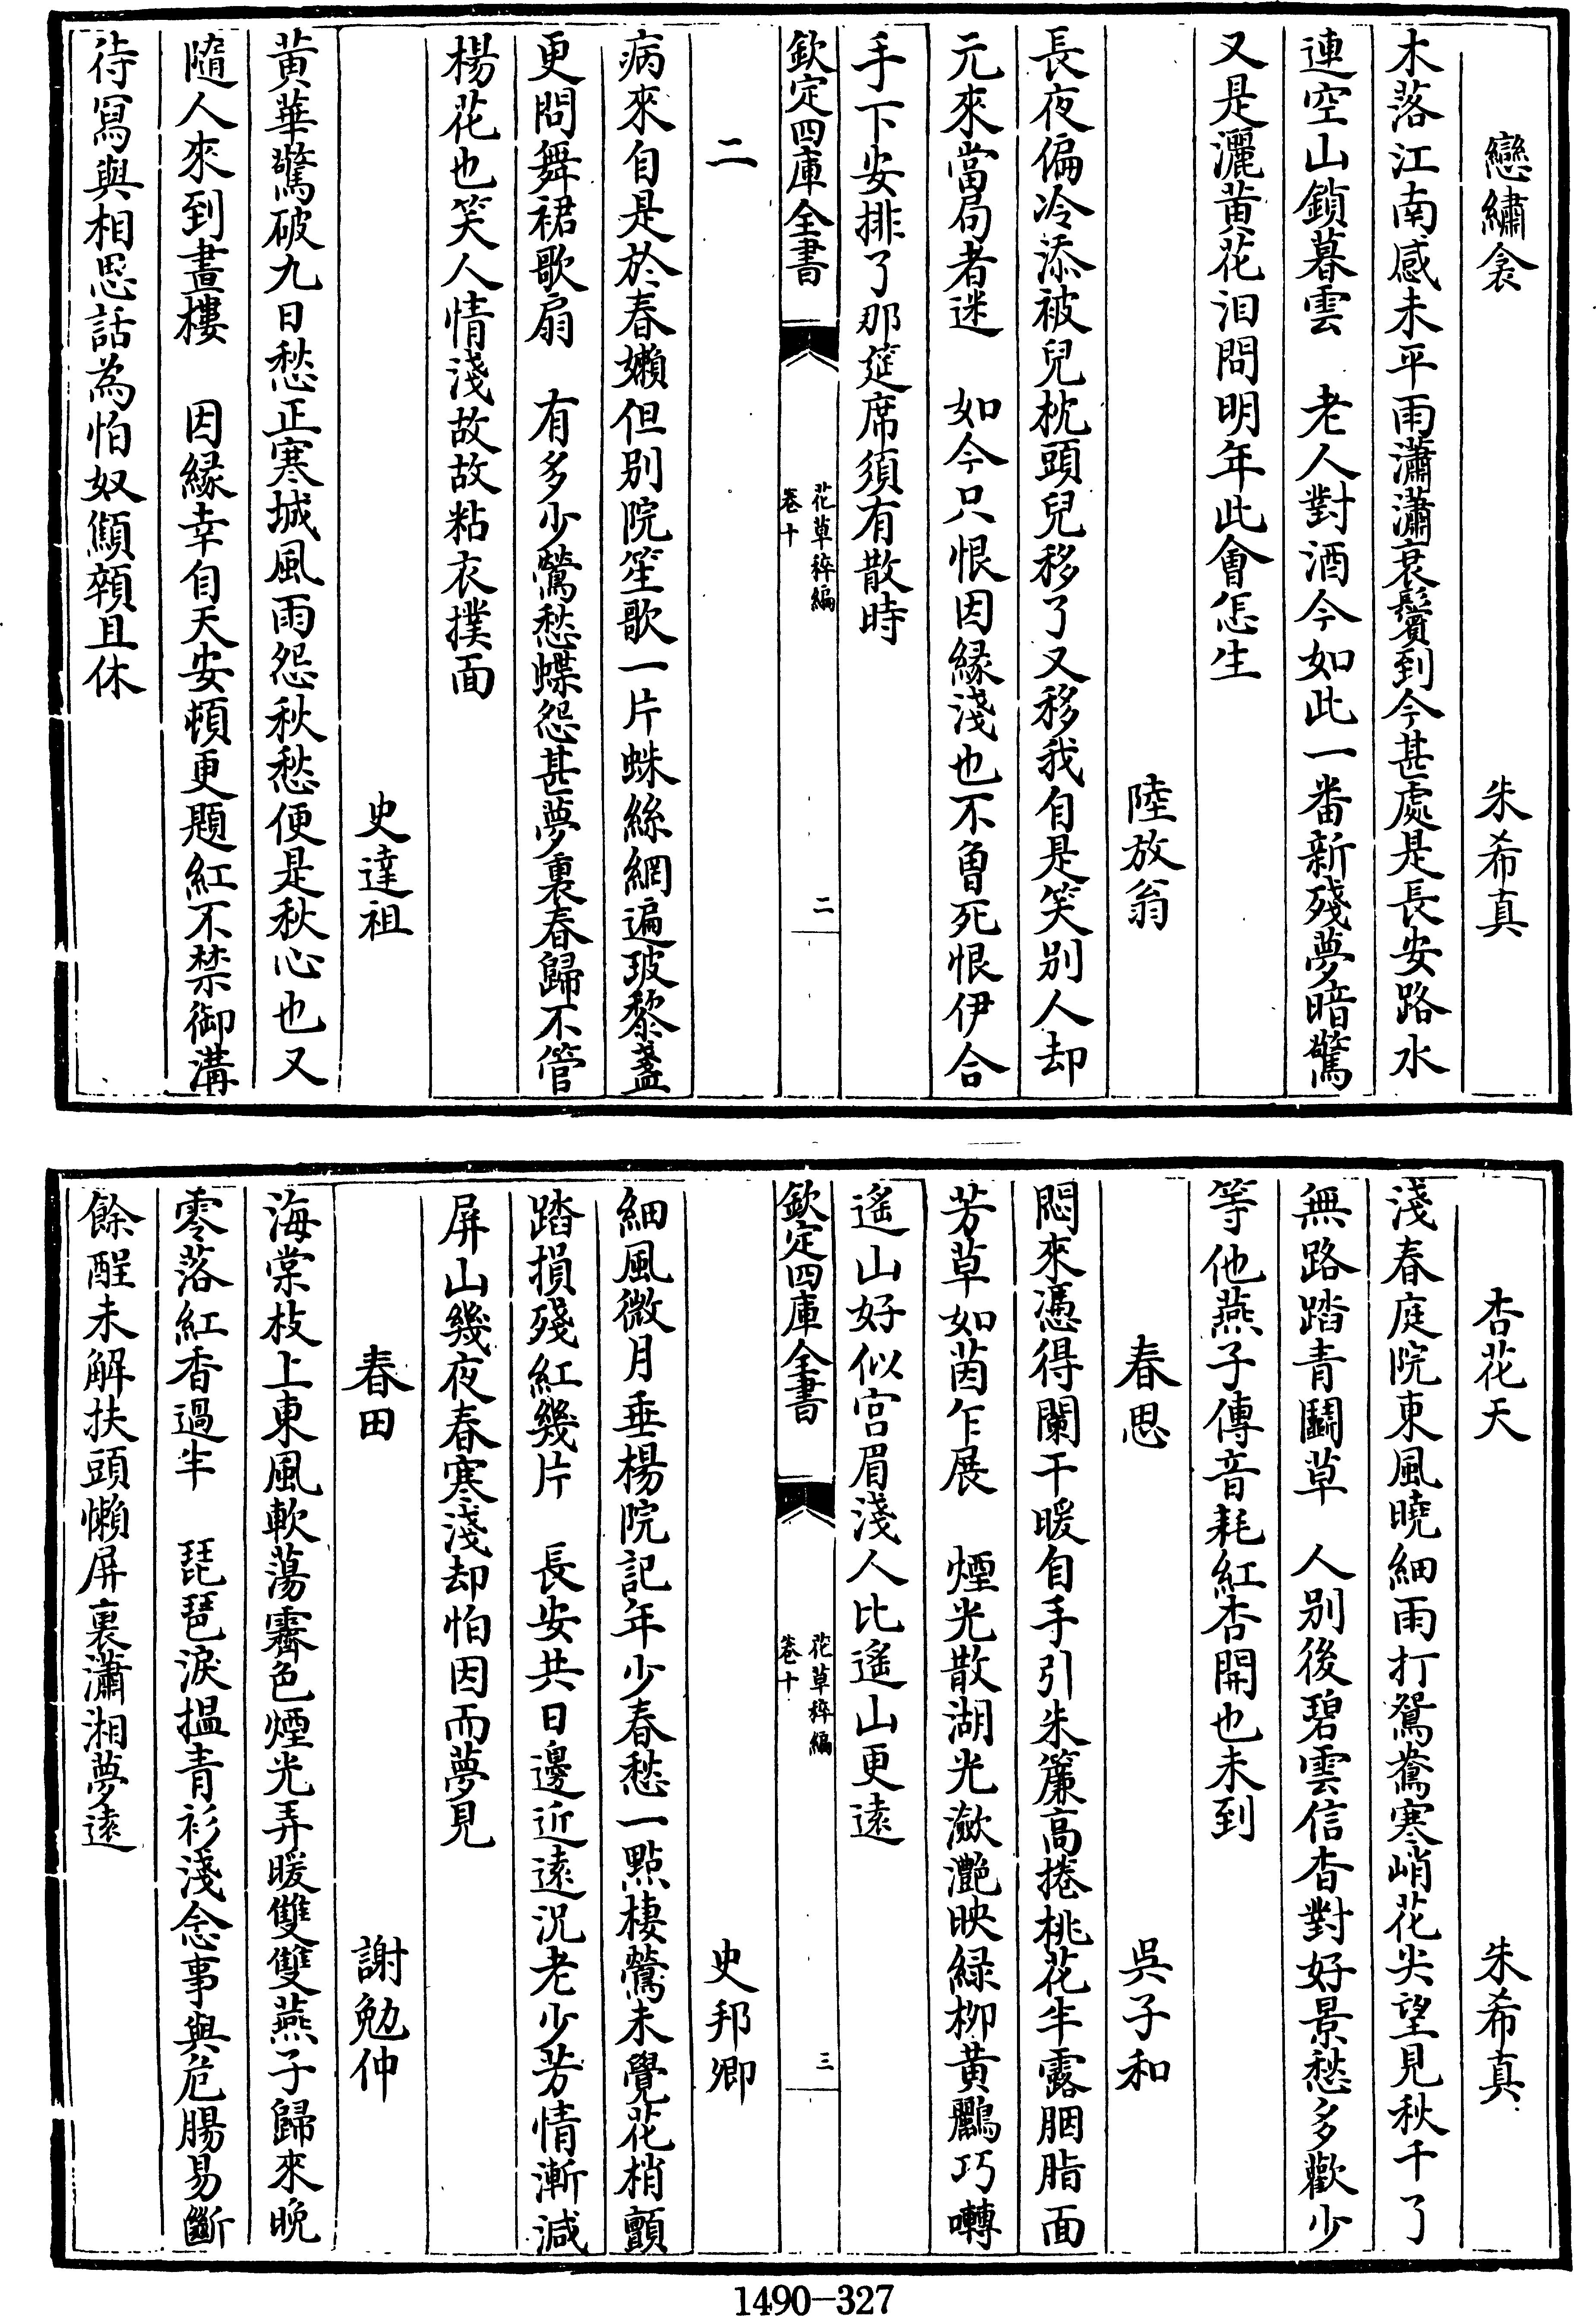 戀繡衾 朱希真
木落江南感未平雨瀟瀟衰鬢到今甚處是長安路水
連空山鎖暮雲 老人對酒今如此一番新殘夢暗驚
又是灑黃花泪問明年此會怎生
陸放翁
長夜偏冷添被兒枕頭兒移了又移我自是笑別人却
元來當局者迷 如今只恨因緣淺也不曾死恨伊合
手下安排了那筵席須有散時
欽定四庫全書 花草稡編 卷十 二
二
病來自是於春嬾但別院笙歌一片蛛絲網遍玻黎盞
更問舞裙歌扇 有多少鶯愁蝶怨甚夢裏春歸不管
楊花也笑人情淺故故粘衣撲面
史達祖
黃華驚破九日愁正寒城風雨怨秋愁便是秋心也又
隨人來到畫樓 因緣幸自天安頓更題紅不禁御溝
待寫與相思話為怕奴顦顇且休
杏花天 朱希真
淺春庭院東風曉細雨打鴛鴦寒峭花尖望見秋千了
無路踏青鬭草 人別後碧雲信杳對好景愁多歡少
等他燕子傳音耗紅杏開也未到
春思 吳子和
悶來憑得闌干暖自手引朱簾高捲桃花半露胭脂面
芳草如茵乍展 煙光散湖光瀲灩映緑柳黃鸝巧囀
遙山好似宮眉淺人比遙山更遠
欽定四庫全書 花草稡編 卷十 三
史邦卿
細風微月垂楊院記年少春愁一點棲鶯未覺花梢顫
踏損殘紅幾片 長安共日邊近遠況老少芳情漸減
屏山幾夜春寒淺却怕因而夢見
春田 謝勉仲
海棠枝上東風軟蕩霽色煙光弄暖雙雙燕子歸來晚
零落紅香過半 琵琶淚揾青衫淺念事與危腸易斷
餘酲未解扶頭懶屏裏瀟湘夢遠
1490-327